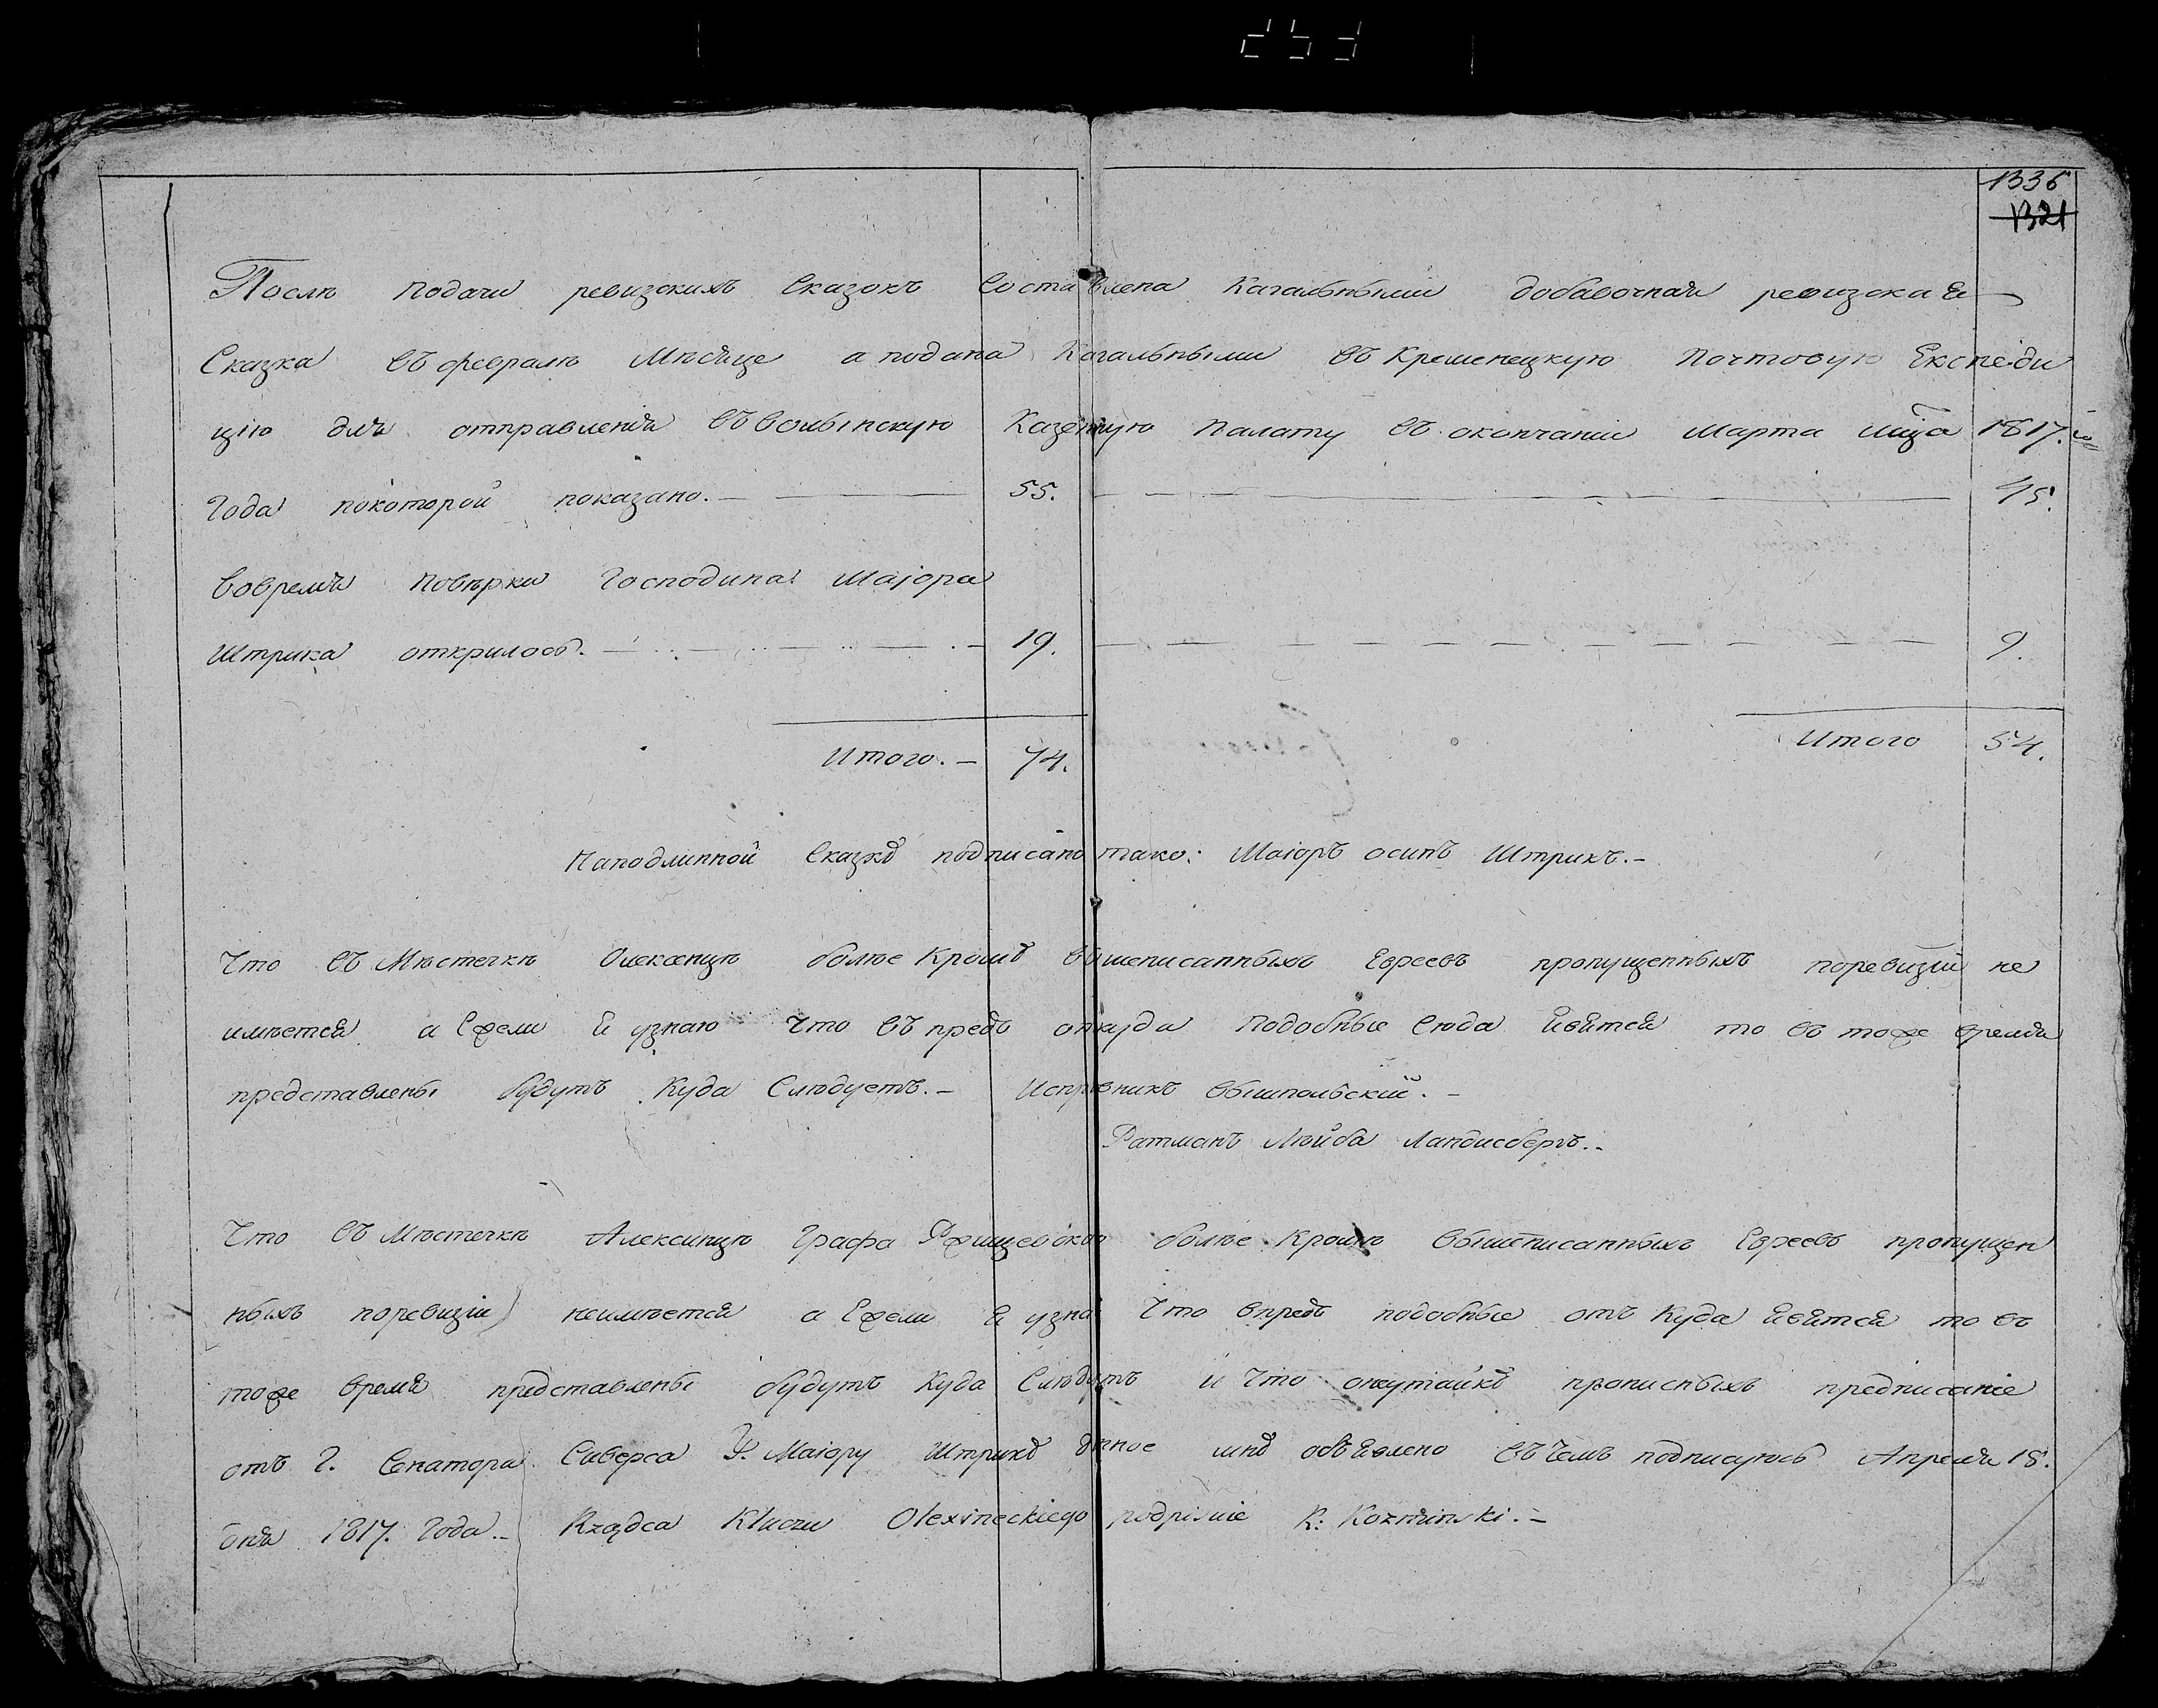 1336
1321
Послѣ подачи ревизскихъ Сказокъ Составлена Кагальными добавочная ревизская
Сказка въ февралѣ Мѣсяце а подана Кагальными въ Кременецкую Почтовую Експеди
цію для отправленія въ Волынскую Казенную Палату въ окончаніи Марта мца 1817.го
Года покоторой показано. — 55. — 45.
Вовремя повѣрки Господина Маіора
Штрика открилось. — 19. — 9.
Итого. — 74. Итого 54.
Наподлинной Сказкѣ подписано тако: Маіоръ осипъ Штрикъ. —
Что въ Мѣстечкѣ Олексенцѣ болѣе Кромѣ вышеписанныхъ Евреевъ пропущенныхъ поревизіи не
имѣется а Ежели я узнаю что въ предь откуда подобные Сюда явятся то въ тоже время
представлены будутъ Куда Слѣдуетъ. — Исправникъ Вышпольский. —
Ратманъ Лейба Ландисберъ. —
Что въ Мѣстечкѣ Алексинцѣ Графа Ржищевского болѣе Кромѣ вышеписанныхъ Евреевъ пропущен
ныхъ поревизіи неимѣется а Ежели я узнаю Что впредь подобные отъ Куда явятся то въ
тоже время представлены будутъ Куда Слѣдуетъ и Что оутайкѣ прописныхъ предписаніе
отъ Г. Сенатора Сиверса Г. Маіору Штрику данное мнѣ объявлено въ чемъ подписуюсь Апреля 18.
дня 1817. Года. — Rządca Kluczu Olexineckiego podpisuie K: Kozminski. —